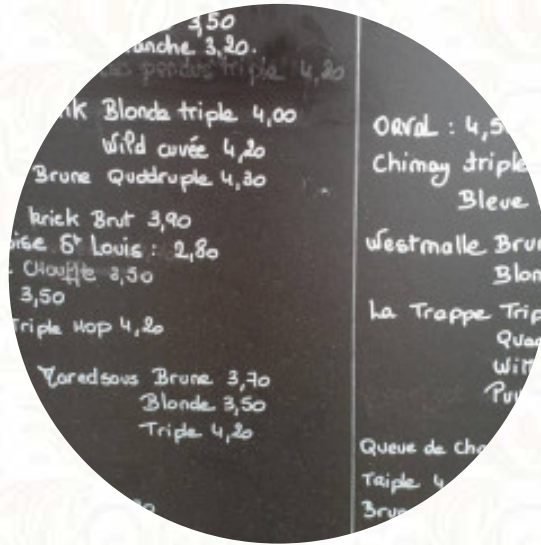 3,50
anche 3,20.
pendus triple 4,20
Blonde triple 4,00
Wild cuvée 4,20
Brune Quadruple 4,30
krick Brut 3,90
St Louis : 2,80
Chouffe 3,50
3,50
Triple Hop 4,20
Maredsous Brune 3,70
Blonde 3,50
Triple 4,20
ORVAL : 4,5
Chimay triple
Bleue
Westmalle Brun
Blon
La Trappe Trip
Quad
Wit
Queue de Cha
Triple 4
Brun